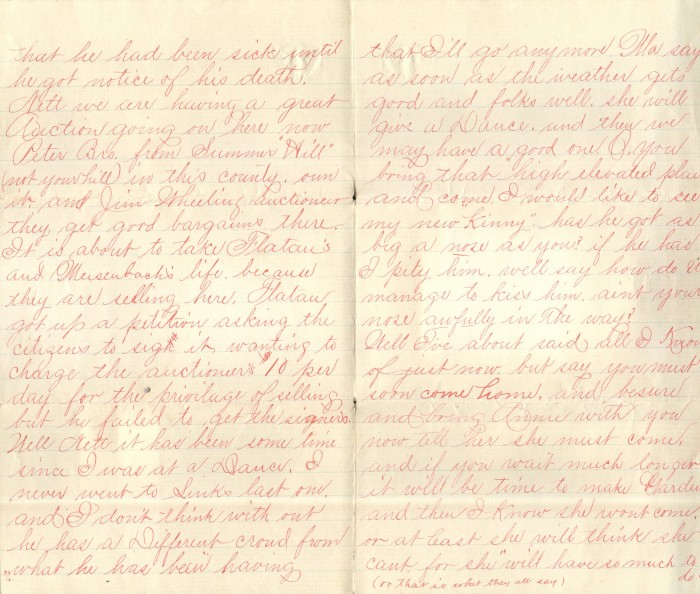 that he had been sick until
he got notice of his death.
Nett we are having a great
Auction going on here now
Peter Bro. from "Summer Hill"
(not your hill) in this county. own
it. and Jim Wheeling auctioneer
they get good bargains there.
It is about to take Flatau's
and Meisenback's life. because
they are selling here. Flatau
got up a petition asking the
citizens to sign it, wanting to
charge the auctioneer's $10 per
day for the privilage of selling
but he failed to get the signers.
Well Nett it has been some time
since I was at a Dance. I
never went to Links last one.
and I don't think with out
he has a Different croud from
"what he has been" having
that I'll go any more. Ma say
as soon as the weather gets
good and folks well. she will
give a Dance. and they we
may have a good one. O, you
bring that "high elevated plan
and come I would like to see
my new Kinny". has he got as
big a nose as you? if he has
I pity him. well say how do
manage to kiss him. aint your
nose awfully in the way?
Well I've about said all I Know
of just now. but say you must
soon come home. and besure
and bring Annie with you
now tell her she must come.
and if you wait much longer
it will be time to make Garde
and then I Know she wont come.
or at least she will think she
cant. for she "will have so much to
do"
(or that is what they all say)